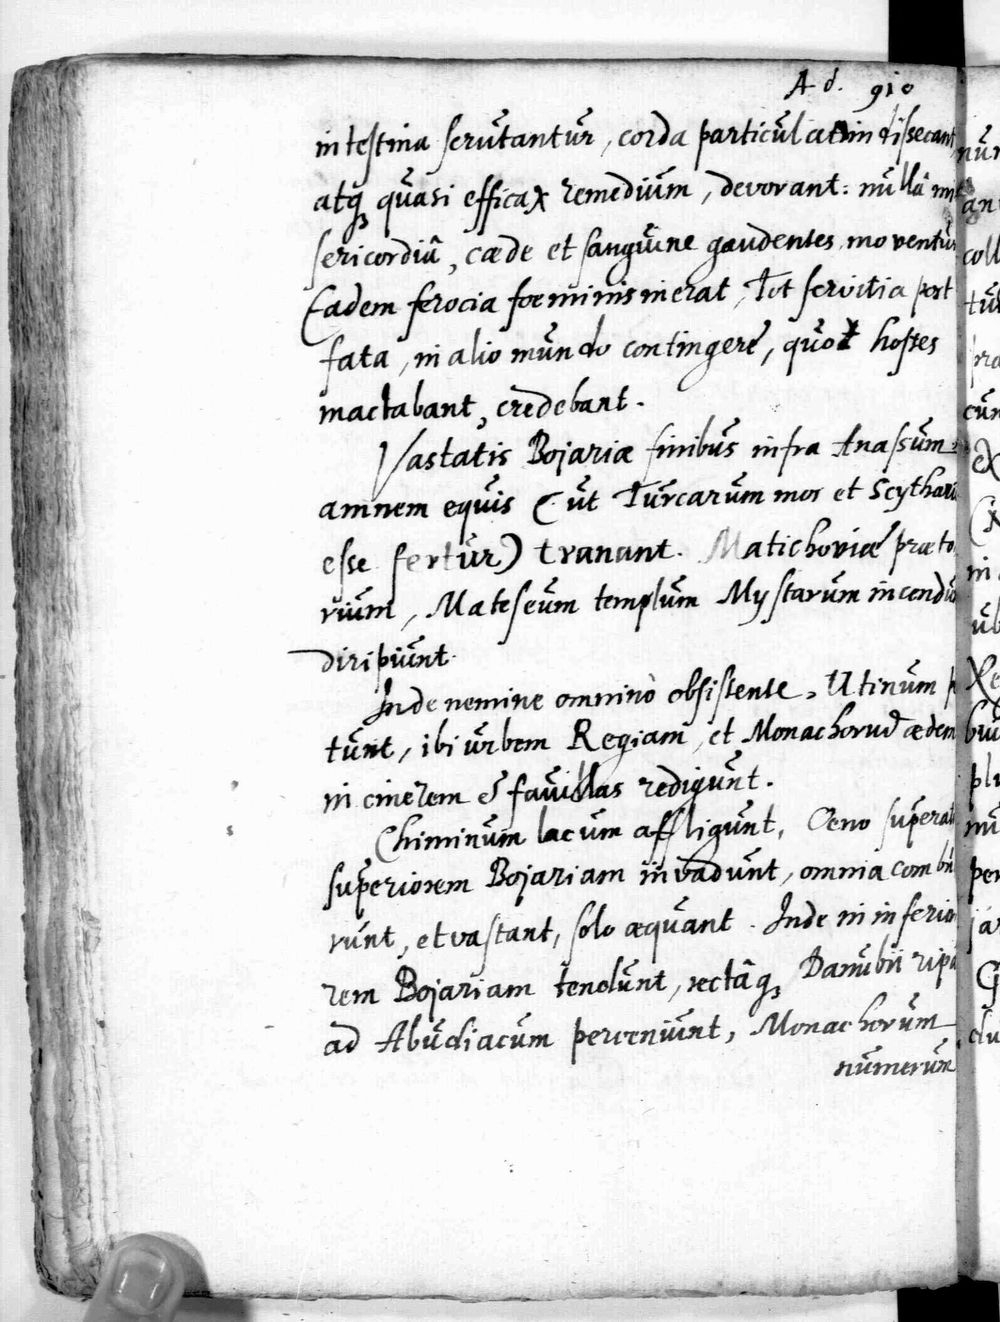 A d. 910
intestina scrutantur, corda particulatim dissecant,
atq; quasi efficax remedium, devorant: nullâ mi
sericordiâ, cæde et sanguine gaudentes moventur
Eadem ferocia foeminis inerat, Tot servitia post
fata, in alio mundo contingere, quot hostes
mactabant, credebant.
Vastatis Bojariæ finibus infra Anassum
amnem equis (ut Turcarum mos et Scytharu
esse fertur) tranant. Matichoviæ præto
rium, Mateseum templum Mystarum incendu
diripiunt.
Inde nemine omninò obsistente, Utinum p
tunt, ibi urbem Regiam, et Monachorum ædem
in cinerem & favillas redigunt.
Chiminum lacum affligunt, Oeno superat
superiorem Bojariam invadunt, omnia combu
runt, et vastant, solo æquant. Inde in inferio
rem Bojariam tendunt, rectâq; Danubii ripa
ad Abudiacum perveniunt, Monachorum
numerum